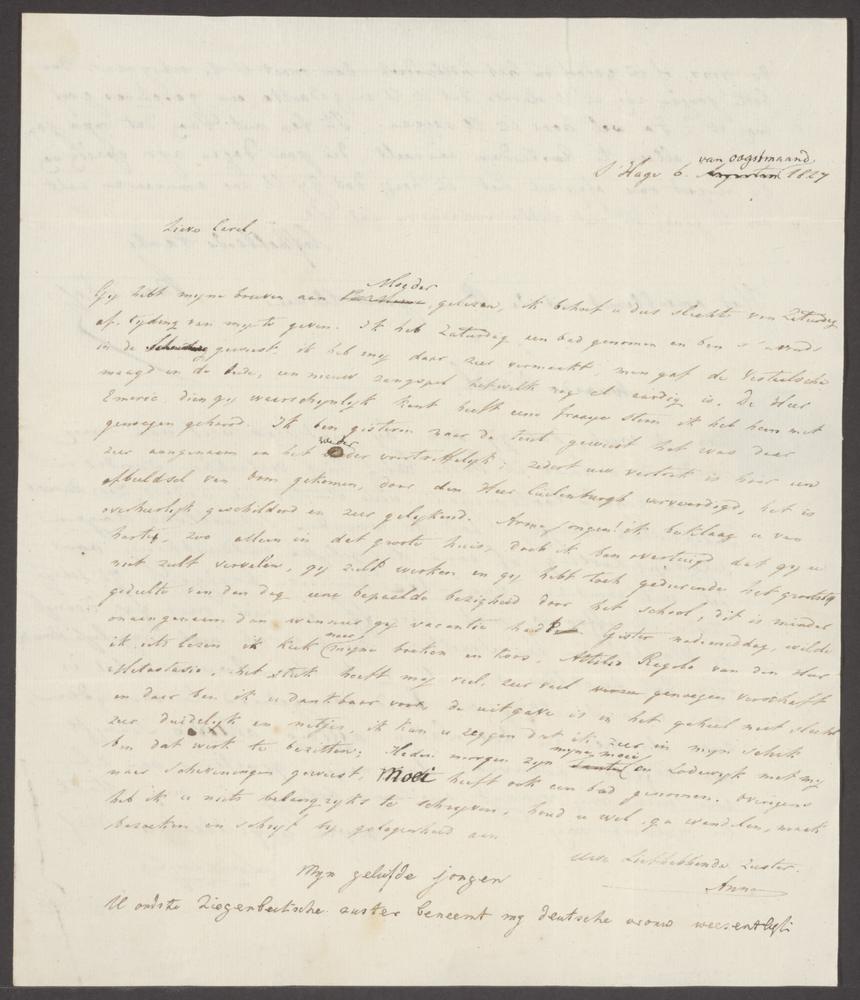 van oogstmaand
S'Hage 6. Augustus 1827
Lieve Carel
Moeder
Gij hebt mijne brieven aan gelezen, ik behoef u dus slechts van Zaturdag
af, tijding van mij te geven. Ik heb Zaturdag een bad genomen en ben s'avonds
in de geweest, ik heb mij daar zeer vermaakt, men gaf de Vestaalsche
maagd in de een nieuw zangspel hetwelk nog al aardig is. De Heer
Emeric dien gij waarschijnlijk kent heeft eene fraaije stem ik heb hem met
genoegen gehoord. Ik ben gisteren naar de tent geweest het was daar
weder
zeer aangenaam en het voortreffelijk; zedert uw vertrek is hier uw
afbeeldsel van Oom gekomen, door den Heer Culenburgh vervaardigd, het is
overheerlijk geschilderd en zeer gelijkend. Arme jongen! ik beklaag u van
harte, zoo alleen in dat groote huis, doch ik ben overtuigd dat gij u
niet zult vervelen, gij zult werken en gij hebt toch gedurende het grootste
gedeelte van den dag eene bepaalde bezigheid door het school, dit is minder
onaangenaam dan wanneer gij vacantie hadt. Gister nademiddag, wilde
mee
ik iets lezen ik keek mijne boeken en koos, Attilio Regolo van den Heer
Metastasio, het stuk heeft mij veel, zeer veel genoegen verschaft
en daar ben ik u dankbaar voor, de uitgave is in het geheel niet slecht
zeer duidelijk en netjes ik kan u zeggen dat ik zeer in mijn schik
ben dat werk te bezitten; Heden morgen zijn mijne moei en Lodewijk met mij
naar Scheveningen geweest, Moei heeft ook een bad genomen. Overigens
heb ik u niets belangrijks te schrijven, houd u wel, ga wandelen, maak
bezoeken en schrijf bij gelegenheid aan
Uwe Liefhebbende Zuster.
Anna
Mijn geliefde jongen
U oudste Ziegenbeetsche zuster beneemt mij deutsche vrouw weesentlijk